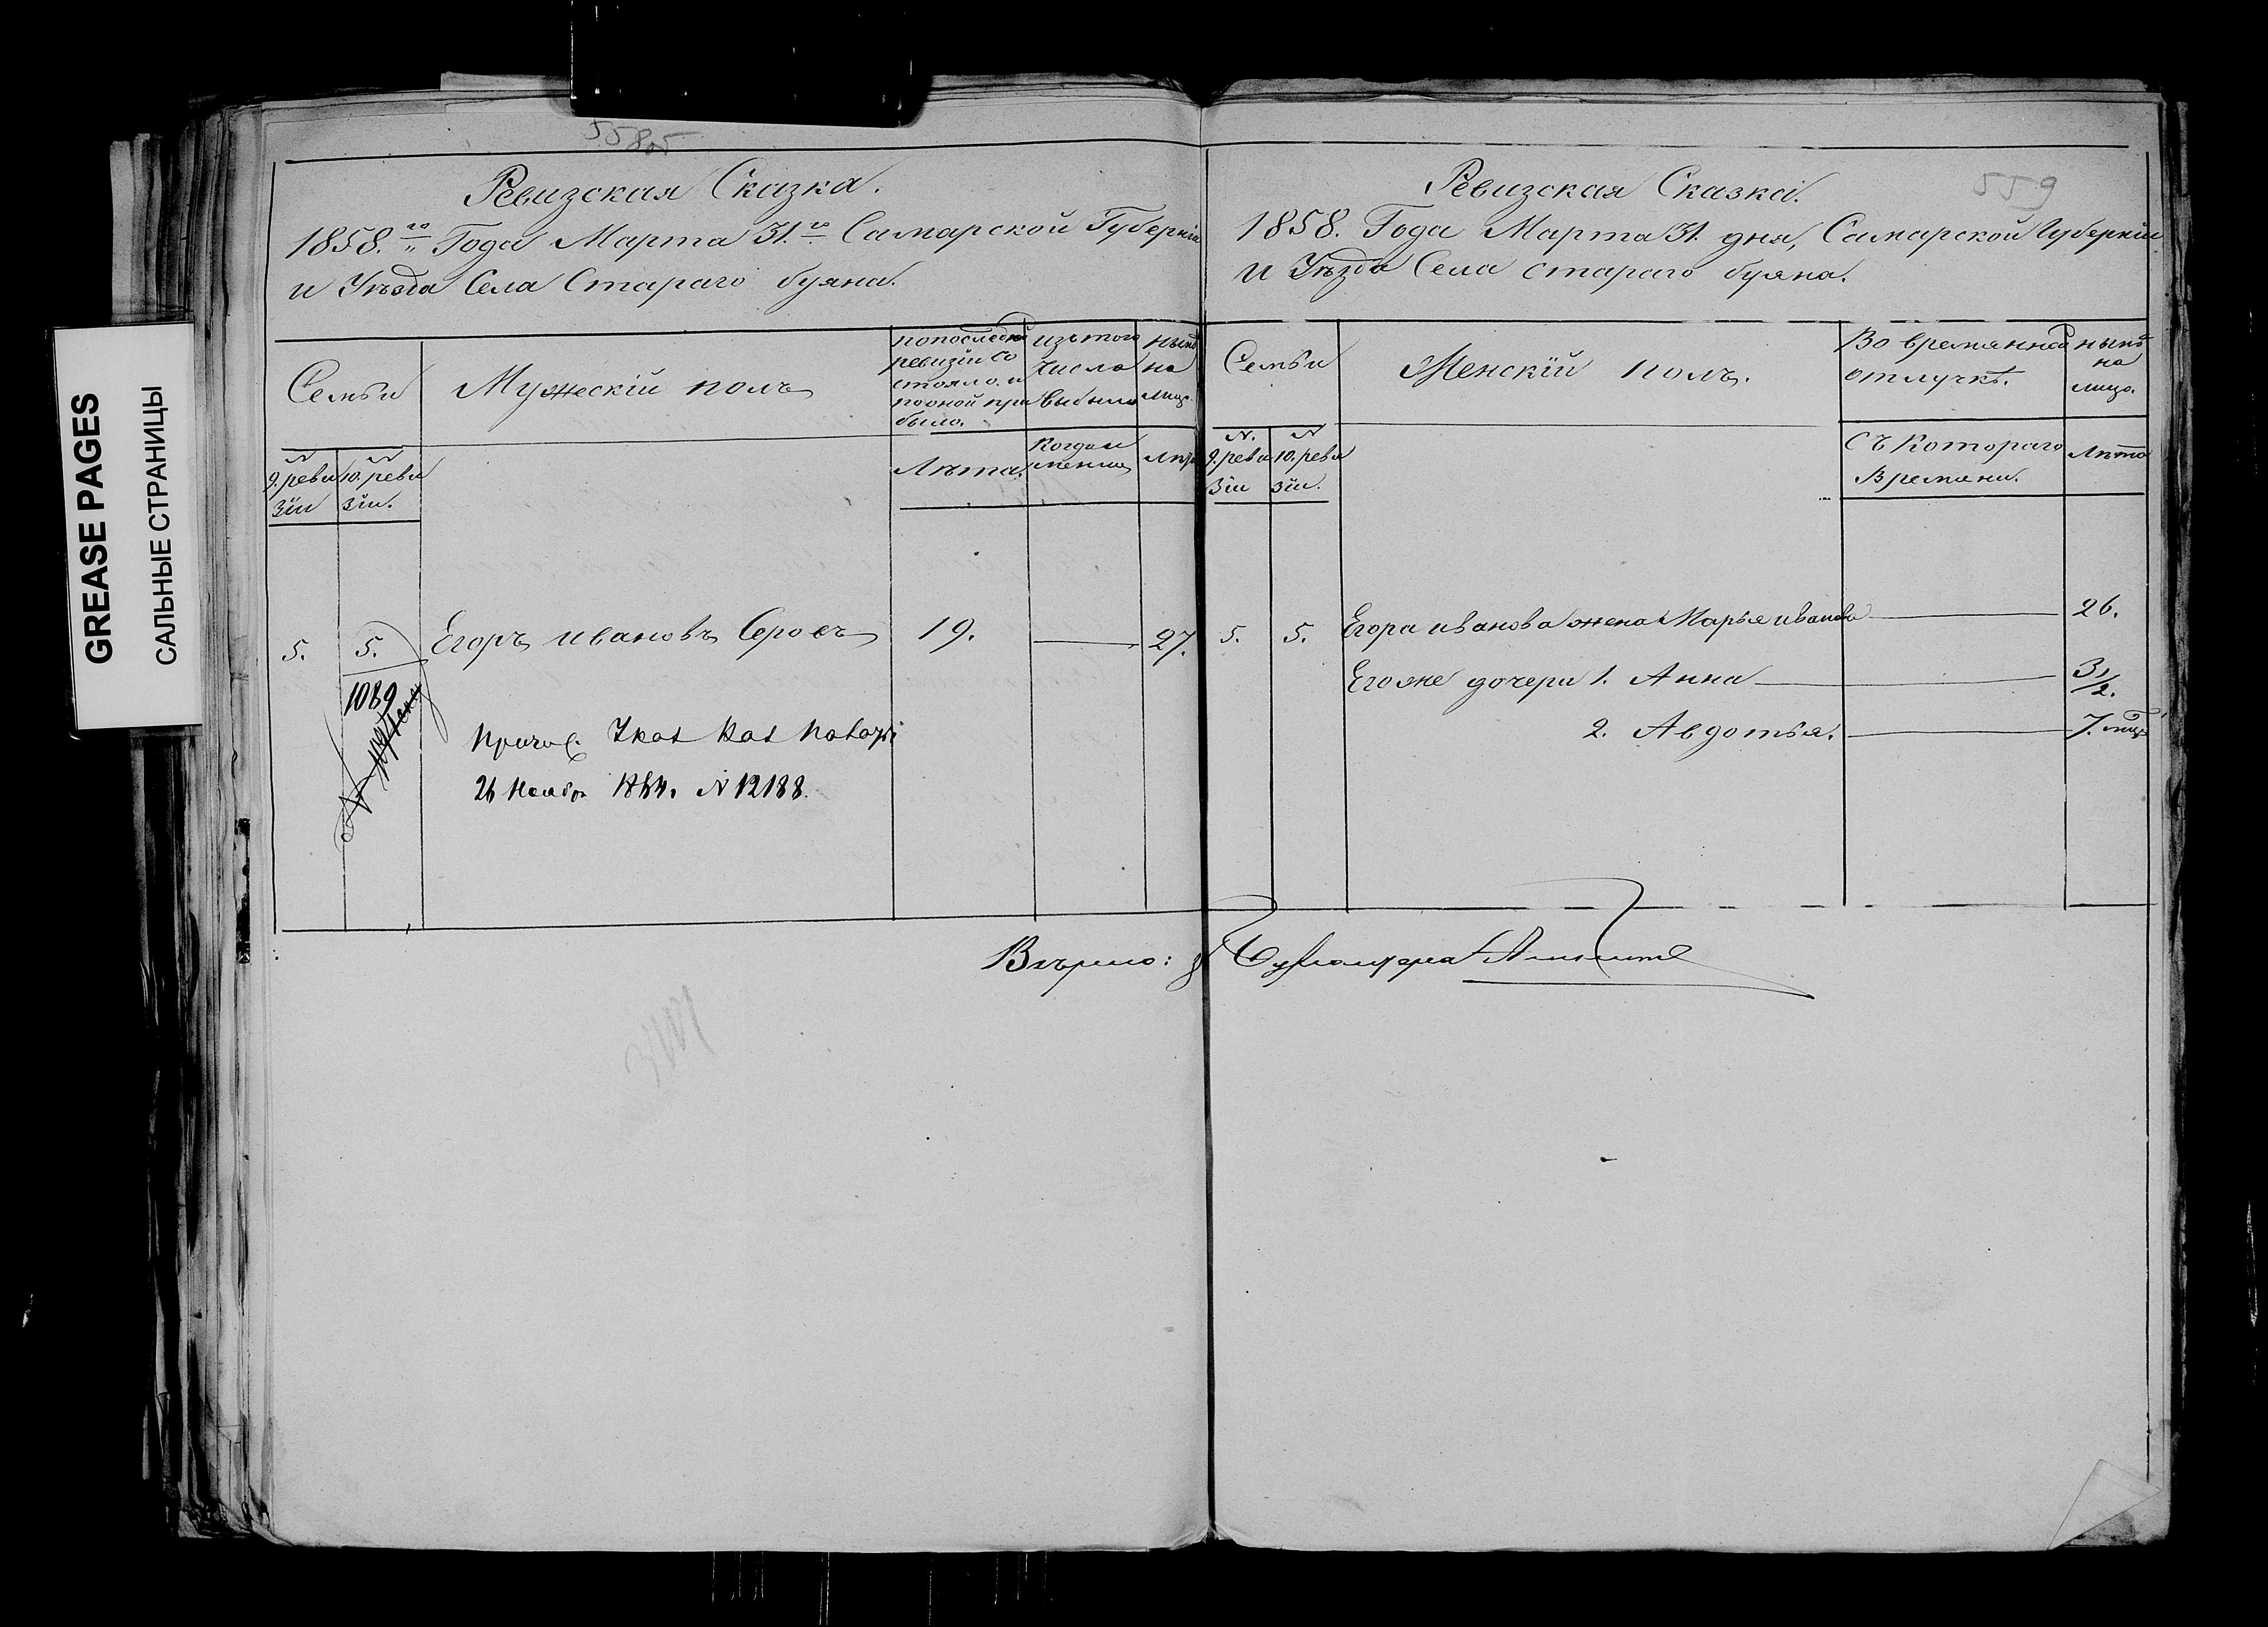 GREASE PAGES
САЛЬНЫЕ СТРАНИЦЫ
558об
Ревизская Сказка.
1858.го Года Марта 31.го Самарской Губерніи
и Уѣзда Села Стараго буяна.
Семьи
Мужескій полъ
попоследней ревизіи со стояло. и поэной при было.
изътого числа выбыло
нынѣ на лицо.
N 9. реви зіи
N 10. реви зіи.
Лѣта.
Когда и менно
Лѣта
5.
5.
Егоръ ивановъ Серовъ
19.
27.
1089
Причис. Указ Каз Палаты
26 Ноября N 12188.
559
Ревизская Сказка.
1858. Года Марта 31. дня, Самарской Губерніи
и Уѣзда Села стараго буяна.
Семьи
Женскій полъ.
Во времянной отлучкѣ.
нынѣ на лицо.
N. 9. реви зіи
N 10. реви зіи.
Съ Котораго Времяни.
Лѣта
5.
5.
Егора иванова жена Марья иванова
26.
Егоже дочери 1. Анна
3 1/2.
2. Авдотья.
7. мцъ
Вѣрно: